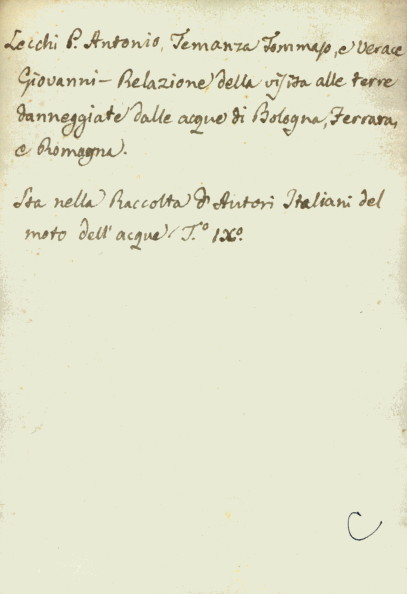 Lecchi P. Antonio, Temanza Tommaso, e Verace
Giovanni – Relazione della visita alle terre
danneggiate dalle acque di Bologna, Ferrara,
e Romagna.
Sta nella Raccolta d'Autori Italiani del
moto dell'acque T.º IXº.
C